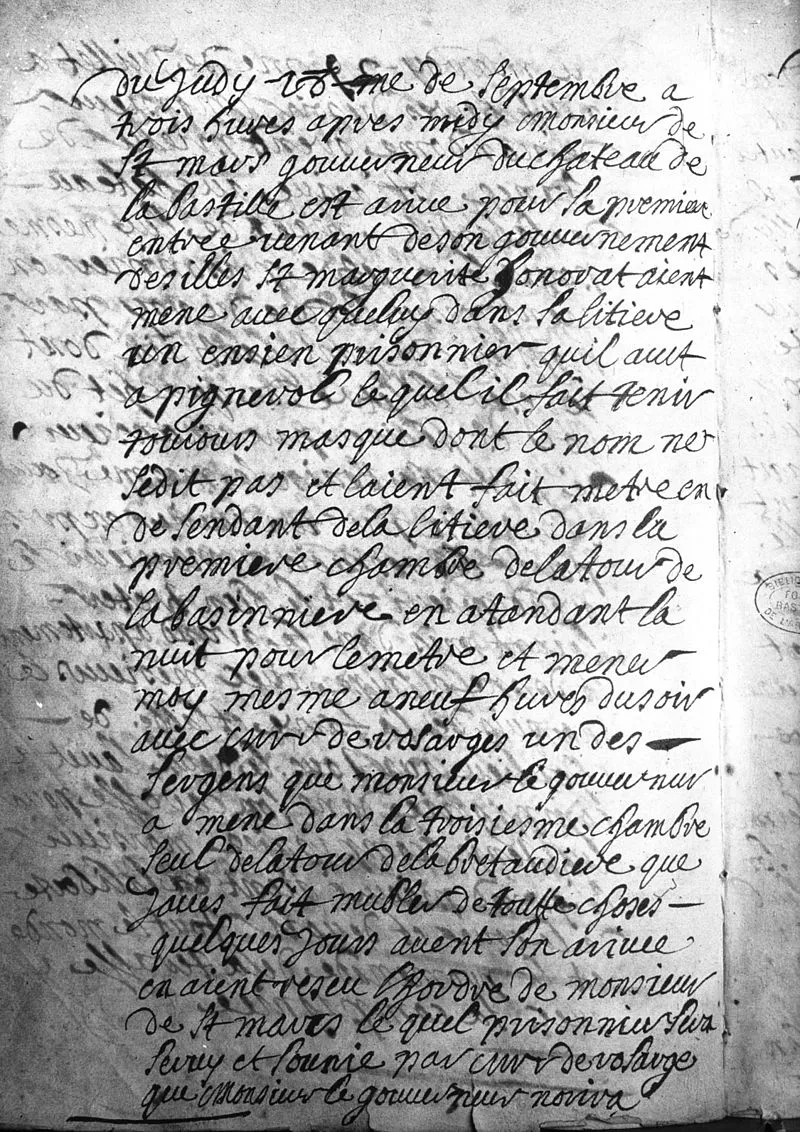 du Judy 18me de Septembre a
trois hures apres midy Monsieur de
St mars gouuerneur du chateau de
la bastille est arive pour sa premiere
entree venant de son gouuernement
des illes St marguerite honorat aient
mene auec queluy dans sa litiere
un ensien prisonnier quil auet
a pignerol le quel il fait tenir
touiours masque dont le nom ne
se dit pas et laient fait metre en
de sendant de la litiere dans la
premiere chambre de la tour de
la basinniere en atandant la
nuit pour le metre et mener
moy mesme a neuf hures du soir
auec mr de rosarges un des
sergens que monsieur le gouuernur
a mene dans la troisiesme chambre
seul de la tour de la bretaudiere que
Javes fait mubler de toutte choses
quelques Jours auent son arivee
en aient reseu lhordre de monsieur
de St mars le quel prisonnier sera
servy et sounie par mr de rosarge
que Monsieur le gouuerneur norira